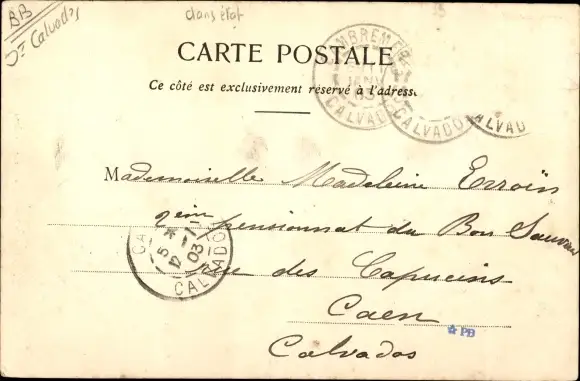 BB
Dt Calvados
dans état
CARTE POSTALE
Ce côté est exclusivement réservé à l'adresse
CAMBREMER
JANV
03
CALVADOS
CALVADOS
CALVAD
Mademoiselle Madeleine Erroïs
2eme pensionnat du Bon Sauveur
rue des Capucins
Caen
Calvados
5 12 -1 03
CALVADOS
PB